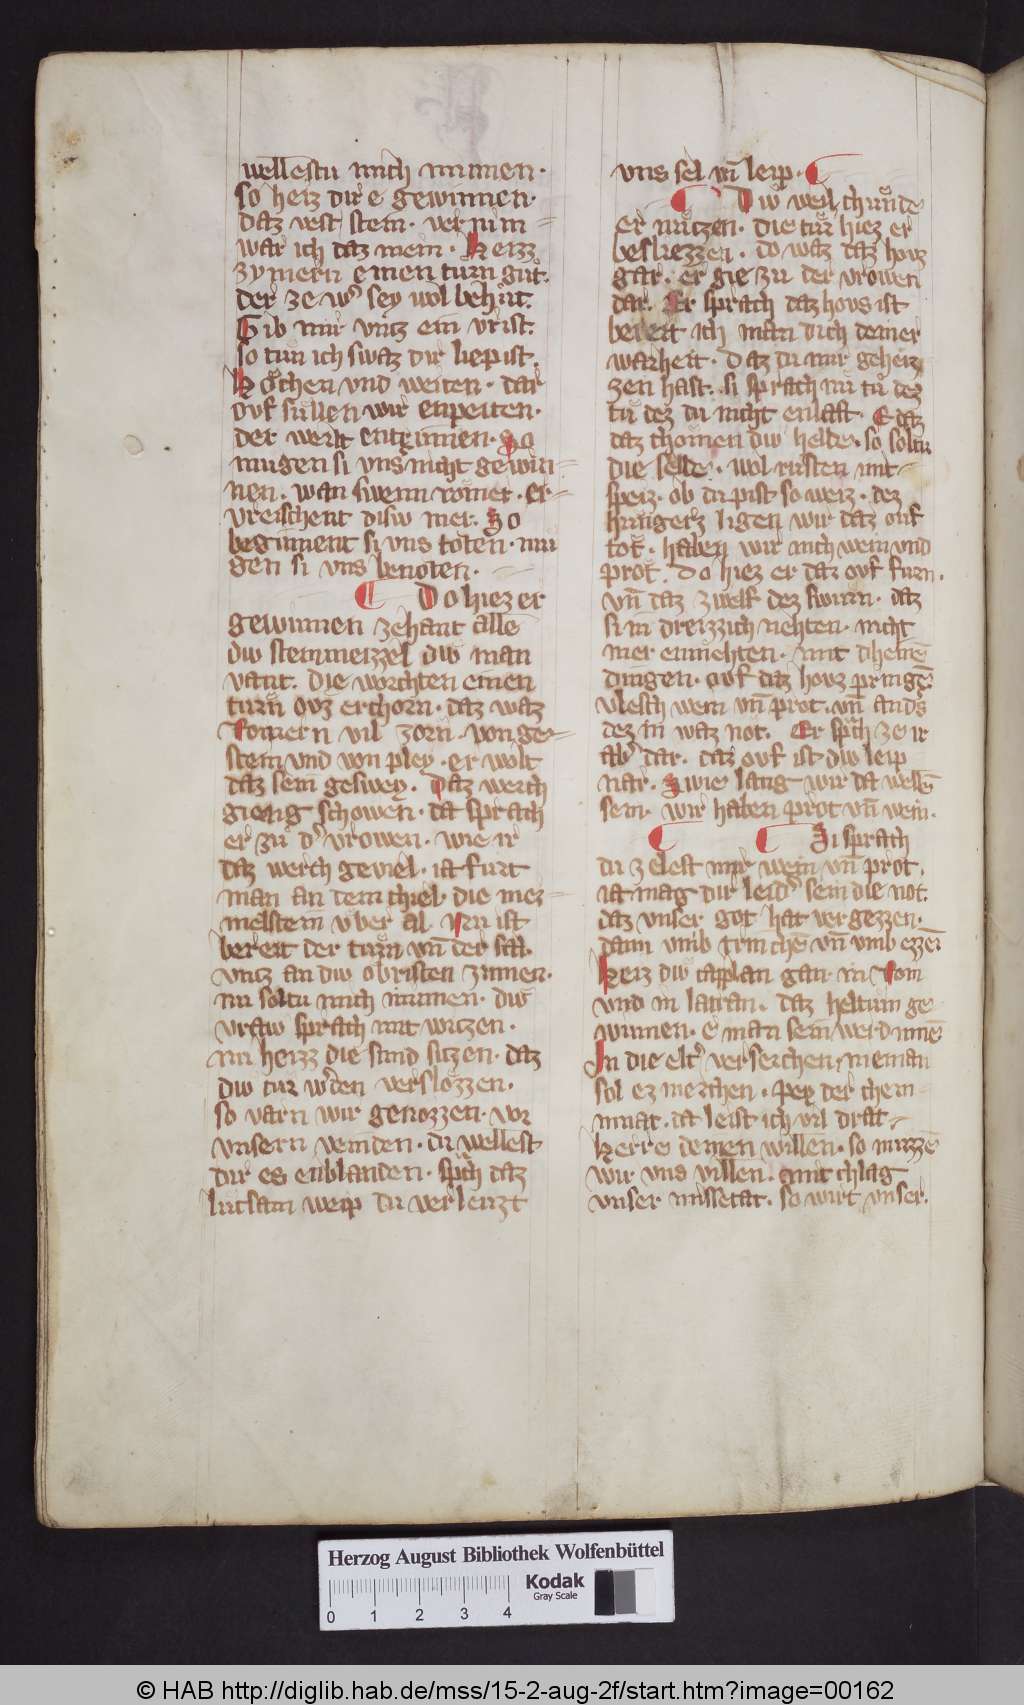 wellestu mich nimmen·
so heiz dir e gewinnen·
daz vest stein· vernim
war ich daz mein· Heizz
zymern einen turn gůt·
der ze w͛ sey wol behůt·
Gib mir vntz ein vrist·
so tun ich swaz dir liep ist·
Kochen vnd weiten· dar
ouf sullen wir enpeiten·
der werlt entrinnen· So
mugen si vns nicht gewin
nen· wan swenn romer· er
vreischent disiv mer· So
beginnent si vns toten· mu
gen si vns benoten·
Do hiez er
gewinnen zehant alle
div steinmeizzel div man
vant· die worchten einen
turn ovz erchorn· daz waz
Romern vil zorn· von ge
stein vnd von pley· er wolt
daz sein geswey· Daz werch
gieng schowen· da sprach
er zů d͛ vrowen· wie ir
daz werch geviel· ia furt
man an dem chiel· die mer
melstein vber al· Nu ist
bereit der turn vn̄ der sal·
vntz an div obristen zinnen·
nu soltu mich minnen· div
vraw sprach mit witzen·
nu heizz die sand sitzen· daz
div tur w͛den verslozzen·
so varn wir genozzen· vor
vnsern veinden· du wellest
dir es enblanden· sp̄ch daz
lutsam weip du verleuzt
vns sel vn̄ leip·
Div weil chunde
er nutzen· die tur hiez er
besliezzen· do waz daz hovz
gar· er gie zu der vrowen
dar· Er sprach daz hovs ist
bereit ich man dich deiner
warheit· Daz du mir geheiz
zen hast· si sprach nu tů dez
tů dez du nicht enlast· E daz
daz chomen div helde· so soltu
die selde· wol rusten mit
speiz· ob du pist so weiz· dez
hungerz ligen wir daz ouf
tot· haben wir nich wein vnd
prot· Do hiez er daz ovf furn·
vn̄ daz zwelf dez swurn· daz
si in dreizzich nehten· nicht
mer enmehten· mit dheinē
dingen· ovf daz hovz pringē·
vleisch wein vn̄ prot· vn̄ and͛s
dez in waz not· Er sp̄ch ze ir
ab͛ dar· daz ovf ist div leip
nar· Swie lang wir da wellē
sein· wir haben prot vn̄ wein·
Si sprach
du zelest mir wein vn̄ prot·
iat mag dir leid͛ sein die not·
daz vnser got hat vergezzen·
dann vmb trinchē vn̄ vmb ezzē
Heiz div capplan gan· in Rom
vnd in latran· daz heltum ge
winnen· e man sein werd innē
In die elt͛ verserchen· nieman
sol ez merchen· pey der chem
innat· da leist ich vil drat·
Herre deinen willen· so muzzē
wir vns villen· mit chlag
vnser missetat· so wirt vnser·
Herzog August Bibliothek Wolfenbüttel
Kodak
Gray Scale
0 1 2 3 4
© HAB http://diglib.hab.de/mss/15-2-aug-2f/start.htm?image=00162